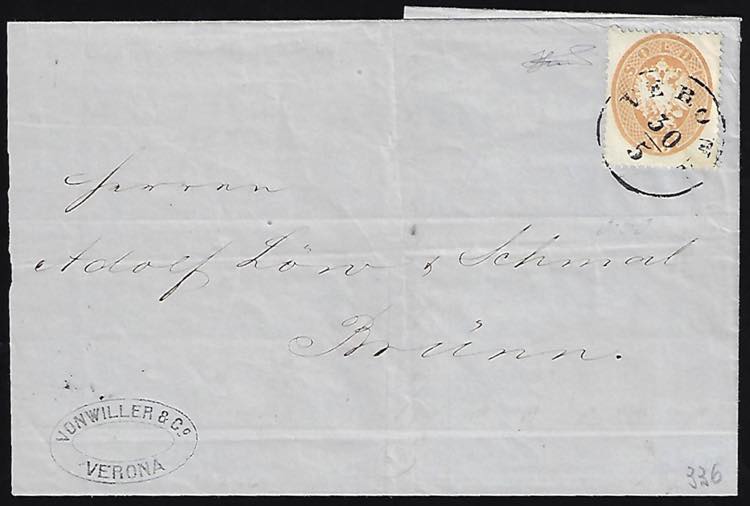 SOLD
VERO
30
5
Herren
Adolf Löw & Schmal
Brünn.
VONWILLER & Co
VERONA
336